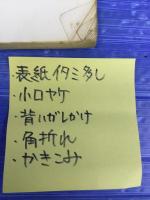 ・表紙イタミ多し
・小口ヤケ
・背ハガレかけ
・角折れ
・かきこみ